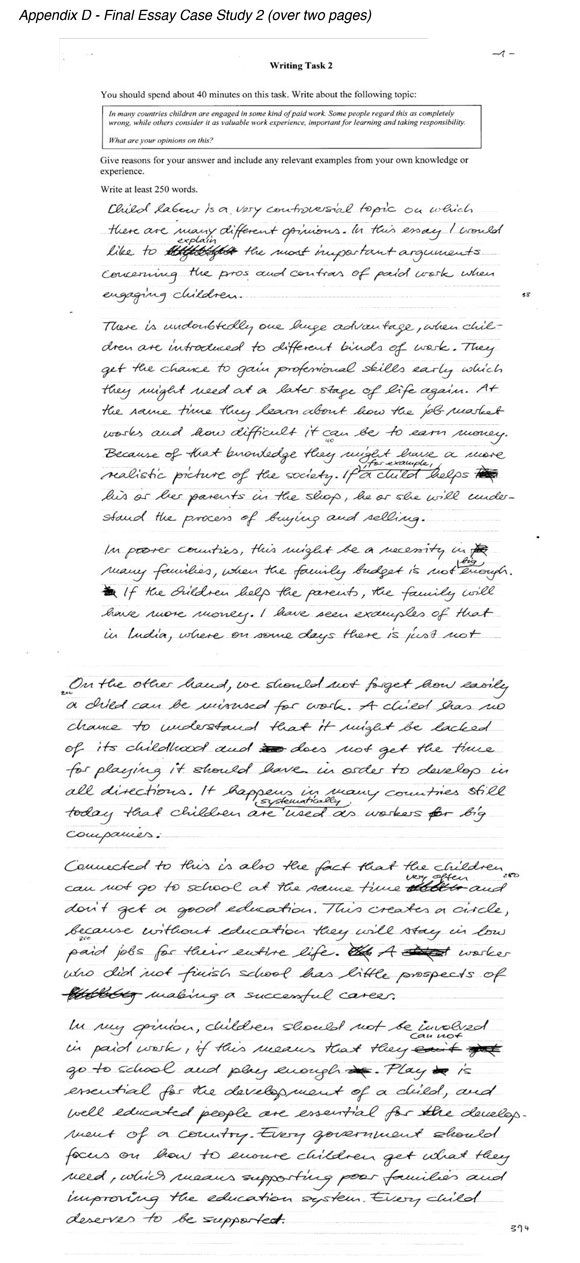 Appendix D - Final Essay Case Study 2 (over two pages)
-1-
Writing Task 2
You should spend about 40 minutes on this task. Write about the following topic:
In many countries children are engaged in some kind of paid work. Some people regard this as completely
wrong, while others consider it as valuable work experience, important for learning and taking responsibility.
What are your opinions on this?
Give reasons for your answer and include any relevant examples from your own knowledge or
experience.
Write at least 250 words.
Child labour is a very controversial topic on which
there are many different opinions. In this essay I would
like to explain the most important arguments
concerning the pros and contras of paid work when
engaging children.
There is undoubtedly one huge advantage, when chil-
dren are introduced to different kinds of work. They
get the chance to gain professional skills early which
they might need at a later stage of life again. At
the same time they learn about how the job market
works and how difficult it can be to earn money.
Because of that knowledge they might have a more
realistic picture of the society. If, for example, a child helps
his or her parents in the shop, he or she will under-
stand the process of buying and selling.
In poorer counties, this might be a necessity in
many families, when the family budget is not big enough.
If the children help the parents, the family will
have more money. I have seen examples of that
in India, where on some days there is just not
On the other hand, we should not forget how easily
a child can be misused for work. A child has no
chance to understand that it might be lacked
of its childhood and does not get the time
for playing it should have in order to develop in
all directions. It happens in many countries still
today that children are systematically used as workers for big
companies.
Connected to this is also the fact that the children
can not go to school at the same time very often and
don't get a good education. This creates a circle,
because without education they will stay in low
paid jobs for their entire life. A worker
who did not finish school has little prospects of
making a successful career.
In my opinion, children should not be involved
in paid work, if this means that they can not
go to school and play enough. Play is
essential for the development of a child, and
well educated people are essential for the develop-
ment of a country. Every government should
focus on how to ensure children get what they
need, which means supporting poor families and
improving the education system. Every child
deserves to be supported.
394